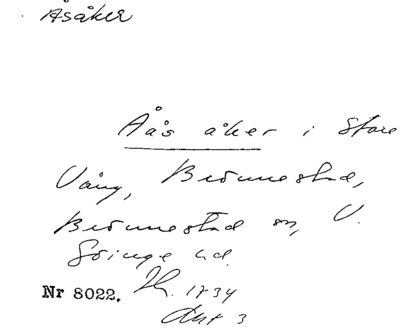 Åsåker
Åås åker i Store
Vång, Brönnestad,
Brönnestad sn, V.
Göinge hd.
Nr 8022. Th. 1734
Akt 3